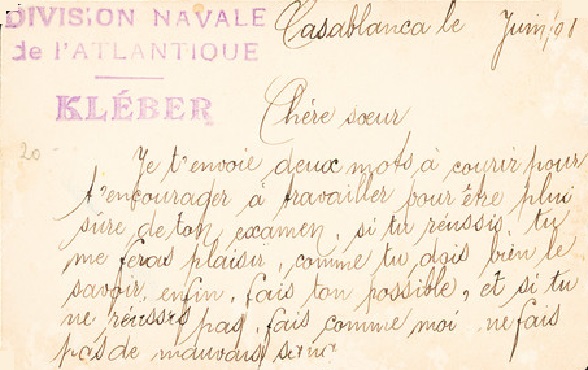 DIVISION NAVALE
de l'ATLANTIQUE
KLÉBER
Casablanca le Juin 01
Chére sœur
20
Je t'envoie deux mots à courir pour
t'encourager à travailler pour être plui
sûre de ton examen, si tu réussis, tu
me feras plaisir, comme tu dois bien le
savoir, enfin, fais ton possible, et si tu
ne réussis pas, fais comme moi ne fais
pas de mauvais